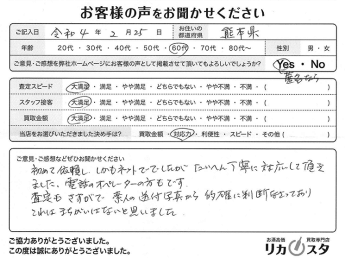 お客様の声をお聞かせください
ご記入日 令和4年2月25日 お住いの都道府県 熊本県
年齢 20代・30代・40代・50代・60代・70代・80代 性別 男・女
ご意見・ご感想を弊社ホームページにお客様の声として掲載させて頂いてもよろしいでしょうか? Yes・No
匿名なら
査定スピード 大満足・満足・やや満足・どちらでもない・やや不満・不満・( )
スタッフ接客 大満足・満足・やや満足・どちらでもない・やや不満・不満・( )
買取金額 大満足・満足・やや満足・どちらでもない・やや不満・不満・( )
当店をお選びいただきました決め手は? 買取金額・対応力・利便性・スピード・その他( )
ご意見・ご感想などぜひお聞かせください
初めて依頼し、しかもネットででしたが、たいへん丁寧に対応して頂き
ました。電話のオペレーターの方もです。
査定も さすがで 素人の送付写真から 的確に判断なさっており
これはまちがいはないと思いました。
ご協力ありがとうございました。
この度は誠にありがとうございました。
お酒高価買取専門店
リカスタ